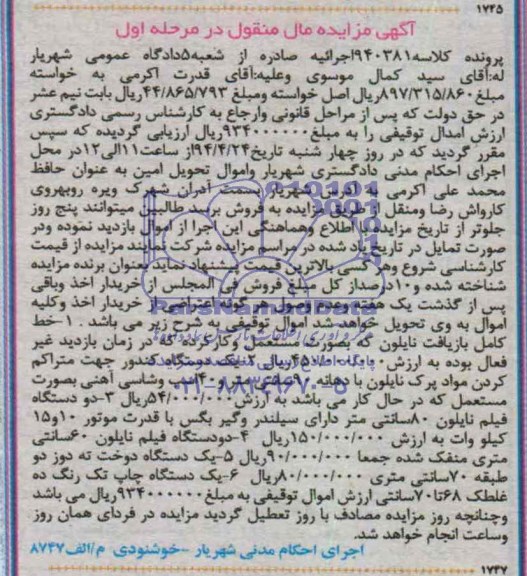 ۱۷۴۵
آگهی مزایده مال منقول در مرحله اول
پرونده کلاسه۹۴۰۳۸۱اجرائیه صادره از شعبه۵دادگاه عمومی شهریار
له:آقای سید کمال موسوی وعلیه:آقای قدرت اکرمی به خواسته
مبلغ۸۹۷/۳۱۵/۸۶۰ریال اصل خواسته ومبلغ ۴۴/۸۶۵/۷۹۳ریال بابت نیم عشر
در حق دولت که پس از مراحل قانونی وارجاع به کارشناس رسمی دادگستری
ارزش امدال توقیفی را به مبلغ۹۳۴۰۰۰۰۰۰ریال ارزیابی گردیده که سپس
مقرر گردید که در روز چهار شنبه تاریخ۹۴/۴/۲۴از ساعت۱۱الی۱۲در محل
اجرای احکام مدنی دادگستری شهریار واموال تحویل امین به عنوان حافظ
محمد علی اکرمی به آدرس شهریار بسمت آدران شهرک ویره روبهروی
کارواش رضا ومنقل از طریق مزایده به فروش برسد طالبین میتوانند پنج روز
جلوتر از تاریخ مزایده با اطلاع وهماهنگی این اجرا از اموال بازدید نموده ودر
صورت تمایل در تاریخ یاد شده در مراسم مزایده شرکت نمایند مزایده از قیمت
کارشناسی شروع وهر کسی بالاترین قیمت پیشنهاد نماید بعنوان برنده مزایده
شناخته شده و۱۰درصداز کل مبلغ فروش فی المجلس از خریدار اخذ وباقی
پس از گذشت یک هفته وعدم وصول هر گونه اعتراضی از خریدار اخذ وکلیه
اموال به وی تحویل خواهد شد اموال توقیفی به شرح زیر می باشد . ۱-خط
کامل بازیافت نایلون که بصورت مستعمل وکارکرده که در زمان بازدید غیر
فعال بوده به ارزش ریال ۲-یک دستگاه کندور جهت متراکم
کردن مواد پرک نایلون با دهانه ۹۰سانتی متر و ۴۰اسب وشاسی آهنی بصورت
مستعمل که در حال کار می باشد به ارزش ۵۴/۰۰۰/۰۰۰ریال ۳-دو دستگاه
فیلم نایلون ۸۰سانتی متر دارای سیلندر وگیر بگس با قدرت موتور ۱۰و۱۵
کیلو وات به ارزش ۱۵۰/۰۰۰/۰۰۰ریال ۴-دودستگاه فیلم نایلون ۶۰سانتی
متری منفک شده جمعا ۹۰/۰۰۰/۰۰۰ریال ۵-یک دستگاه دوخت ته دوز دو
طبقه ۷۰سانتی متری ۸۰/۰۰۰/۰۰۰ریال ۶-یک دستگاه چاپ تک رنگ ده
غلطک ۶۸تا۷۰سانتی ارزش اموال توقیفی به مبلغ۹۳۴۰۰۰۰۰۰ریال می باشد
وچنانچه روز مزایده مصادف با روز تعطیل گردید مزایده در فردای همان روز
وساعت انجام خواهد شد.
اجرای احکام مدنی شهریار -خوشنودی م/الف۸۷۴۷
۱۷۴۷
ParsNamadData